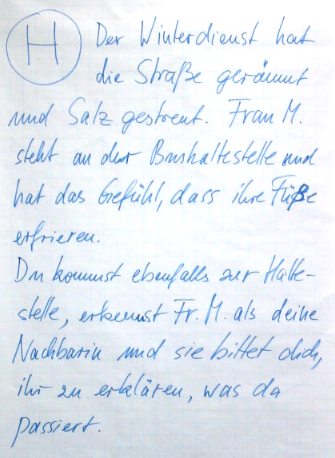 H Der Winterdienst hat
die Straße geräumt
und Salz gestreut. Frau M.
steht an der Bushaltestelle und
hat das Gefühl, dass ihre Füße
erfrieren.
Du kommst ebenfalls zur Halte-
stelle, erkennst Fr. M. als deine
Nachbarin und sie bittet dich,
ihr zu erklären, was da
passiert.